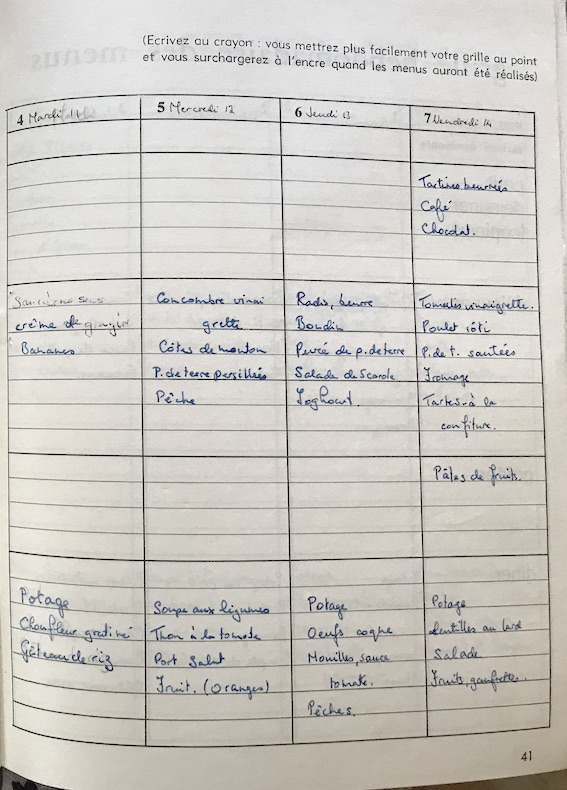 (Ecrivez au crayon : vous mettrez plus facilement votre grille au point
et vous surchargerez à l'encre quand les menus auront été réalisés)
4 Mardi 11
5 Mercredi 12
6 Jeudi 13
7 Vendredi 14
Tartines beurrées
Café
Chocolat.
crème de
Bananes
Concombre vinai
grette
Côtes de mouton
P. de terre persillées
Pêche
Radis, beurre
Boudin
Purée de p. de terre
Salade de Scarole
Yoghourt.
Tomates vinaigrette.
Poulet rôti
P. de t. sautées
Fromage
Tartes à la
confiture.
Pâtes de fruits.
Potage
Choufleur gratiné
Gâteau de riz
Soupe aux légumes
Thon à la tomate
Port Salut
Fruit. (Oranges)
Potage
Oeufs coque
Nouilles, sauce
tomate.
Pêches.
Potage
Lentilles au lard
Salade
Fruits, gaufrettes.
41